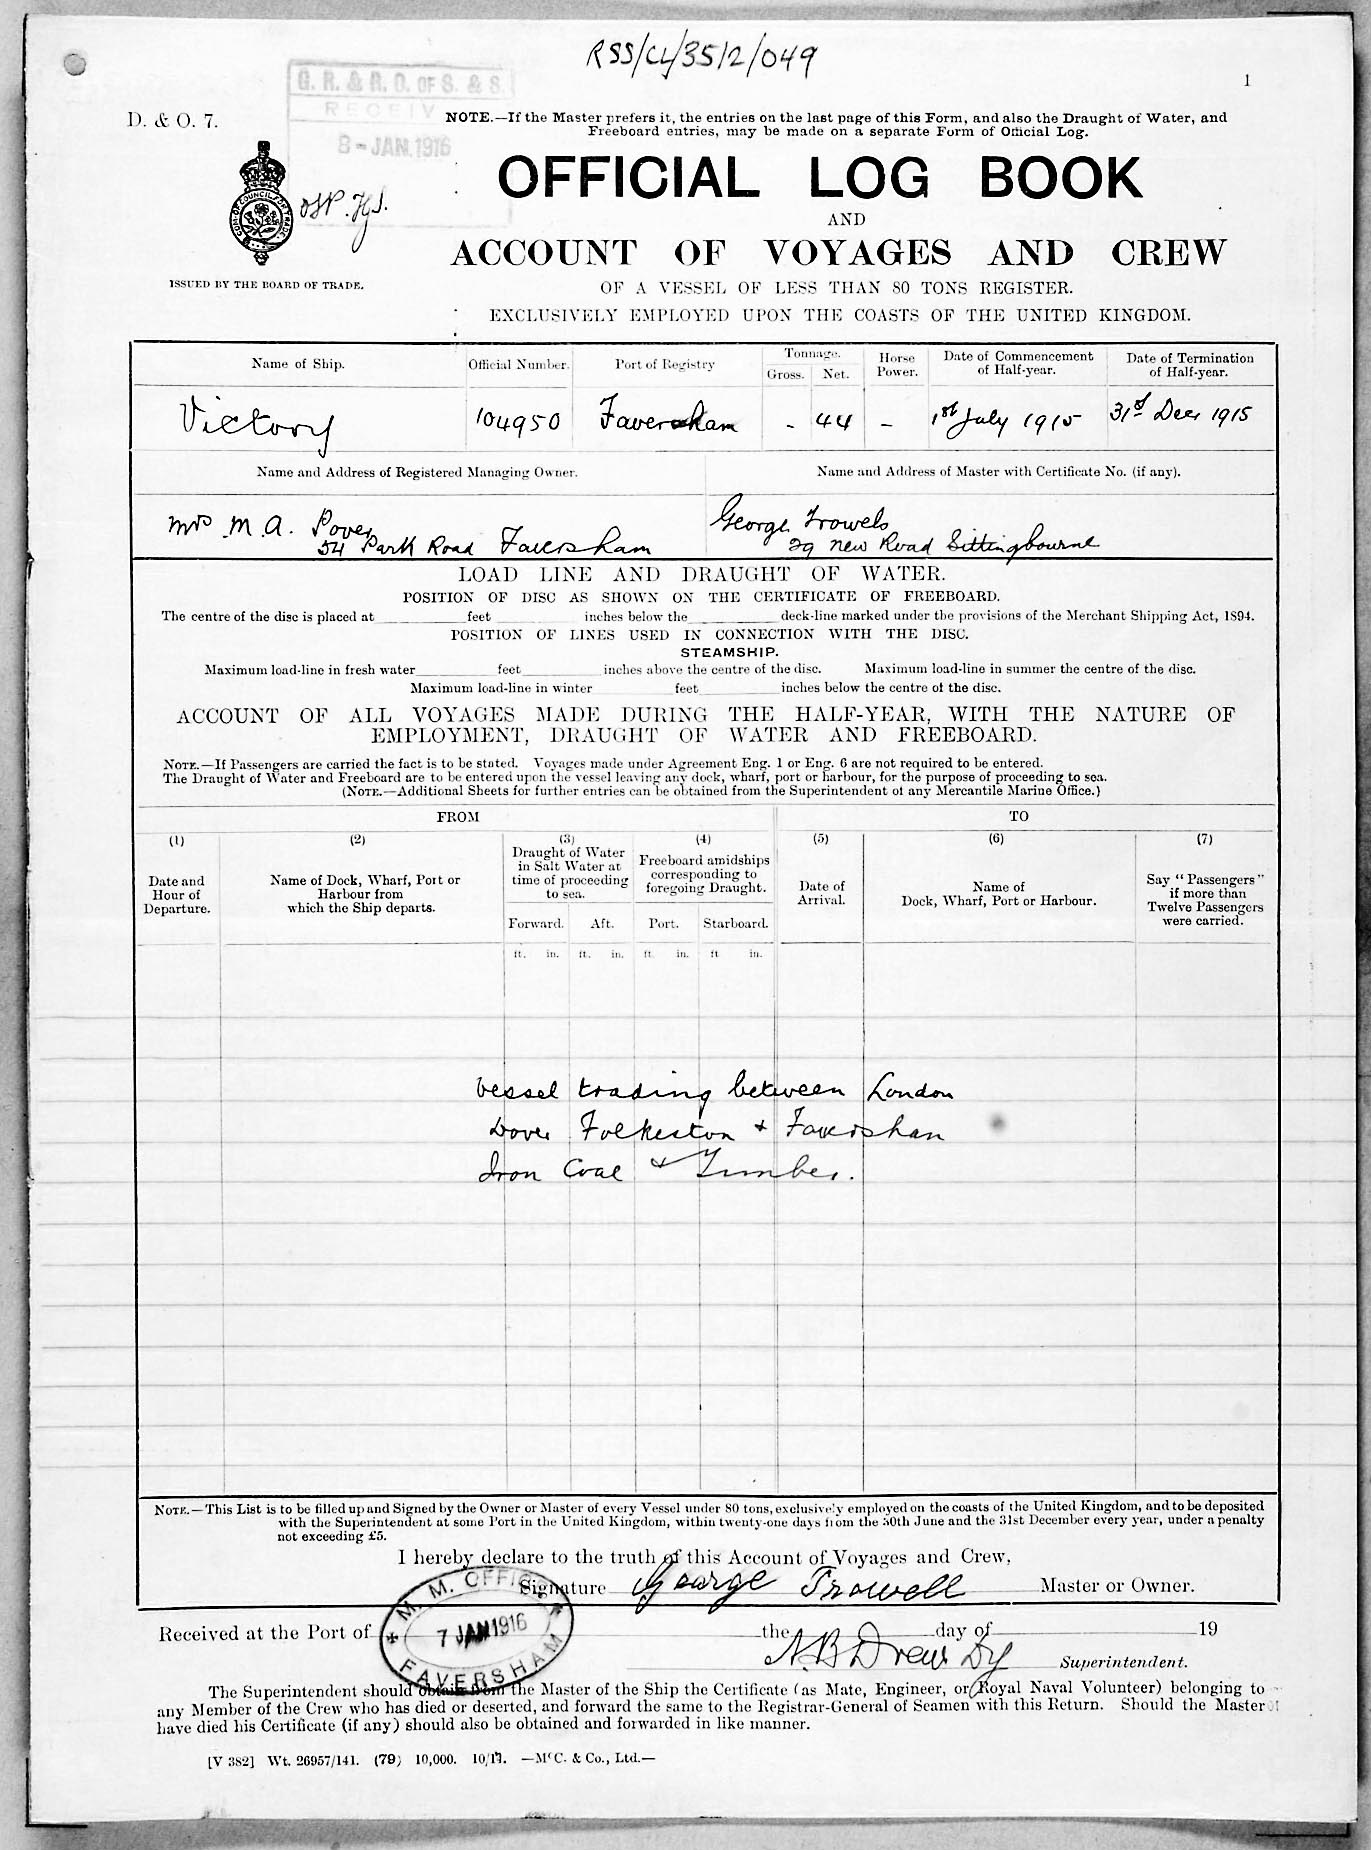 RSS/CL/3512/049
G. R. & R. O. OF S. & S.
RECEIV
8-JAN.1916
1
D. & O. 7.
NOTE.—If the Master prefers it, the entries on the last page of this Form, and also the Draught of Water, and
Freeboard entries, may be made on a separate Form of Official Log.
OFFICIAL LOG BOOK
AND
ACCOUNT OF VOYAGES AND CREW
ISSUED BY THE BOARD OF TRADE.
OF A VESSEL OF LESS THAN 80 TONS REGISTER.
EXCLUSIVELY EMPLOYED UPON THE COASTS OF THE UNITED KINGDOM.
Name of Ship. Official Number. Port of Registry Tonnage. Gross. Net. Horse Power. Date of Commencement of Half-year. Date of Termination of Half-year.
Victory 104950 Faversham - 44 - 1st July 1915 31st Decr 1915
Name and Address of Registered Managing Owner. Name and Address of Master with Certificate No. (if any).
Mrs M. A. Pover George Trowels
54 Park Road Faversham 29 New Road Sittingbourne
LOAD LINE AND DRAUGHT OF WATER.
POSITION OF DISC AS SHOWN ON THE CERTIFICATE OF FREEBOARD.
The centre of the disc is placed at feet inches below the deck-line marked under the provisions of the Merchant Shipping Act, 1894.
POSITION OF LINES USED IN CONNECTION WITH THE DISC.
STEAMSHIP.
Maximum load-line in fresh water feet inches above the centre of the disc. Maximum load-line in summer the centre of the disc.
Maximum load-line in winter feet inches below the centre of the disc.
ACCOUNT OF ALL VOYAGES MADE DURING THE HALF-YEAR, WITH THE NATURE OF
EMPLOYMENT, DRAUGHT OF WATER AND FREEBOARD.
NOTE.—If Passengers are carried the fact is to be stated. Voyages made under Agreement Eng. 1 or Eng. 6 are not required to be entered.
The Draught of Water and Freeboard are to be entered upon the vessel leaving any dock, wharf, port or harbour, for the purpose of proceeding to sea.
(NOTE.—Additional Sheets for further entries can be obtained from the Superintendent of any Mercantile Marine Office.)
FROM TO
(1) (2) (3) (4) (5) (6) (7)
Date and Hour of Departure.
Name of Dock, Wharf, Port or Harbour from which the Ship departs.
Draught of Water in Salt Water at time of proceeding to sea.
Freeboard amidships corresponding to foregoing Draught.
Date of Arrival.
Name of Dock, Wharf, Port or Harbour.
Say "Passengers" if more than Twelve Passengers were carried.
Forward. Aft. Port. Starboard.
ft. in. ft. in. ft. in. ft in.
Vessel trading between London
Dover Folkeston + Faversham
Iron Coal + Timber.
NOTE.—This List is to be filled up and Signed by the Owner or Master of every Vessel under 80 tons, exclusively employed on the coasts of the United Kingdom, and to be deposited
with the Superintendent at some Port in the United Kingdom, within twenty-one days from the 30th June and the 31st December every year, under a penalty
not exceeding £5.
I hereby declare to the truth of this Account of Voyages and Crew,
Signature George Trowell Master or Owner.
M. M. OFFICE
7 JAN 1916
FAVERSHAM
Received at the Port of the day of 19
A B Drew Dy Superintendent.
The Superintendent should obtain from the Master of the Ship the Certificate (as Mate, Engineer, or Royal Naval Volunteer) belonging to
any Member of the Crew who has died or deserted, and forward the same to the Registrar-General of Seamen with this Return. Should the Master
have died his Certificate (if any) should also be obtained and forwarded in like manner.
[V 382] Wt. 26957/141. (79) 10,000. —McC. & Co., Ltd.—